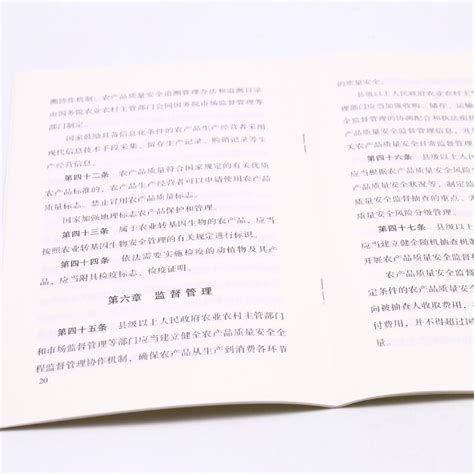 溯协作机制。农产品质量安全追溯管理办法和追溯目录
由国务院农业农村主管部门会同国务院市场监督管理等
部门制定。
国家鼓励具备信息化条件的农产品生产经营者采用
现代信息技术手段采集、留存生产记录、购销记录等生
产经营信息。
第四十二条 农产品质量符合国家规定的有关优质
农产品标准的,农产品生产经营者可以申请使用农产品
质量标志。禁止冒用农产品质量标志。
国家加强地理标志农产品保护和管理。
第四十三条 属于农业转基因生物的农产品,应当
按照农业转基因生物安全管理的有关规定进行标识。
第四十四条 依法需要实施检疫的动植物及其产
品,应当附具检疫标志、检疫证明。
第六章 监督管理
第四十五条 县级以上人民政府农业农村主管部门
和市场监督管理等部门应当建立健全农产品质量安全全
程监督管理协作机制,确保农产品从生产到消费各环节
20
的质量安全。
县级以上人民政府农业农村主
理部门应当加强收购、储存、运输
监督管理的协调配合和执法衔接
产品质量安全监督管理信息,并
产品质量安全日常监督管理
第四十六条 县级以上人
应当根据农产品质量安全风
产品质量安全状况等,制定监
安全监督抽查的重点、
质量安全风险分级管理。
第四十七条 县级以
应当建立健全随机抽查机
开展农产品质量安全监督
农产品质量安全监
定条件的农产品质量安
向被抽查人收取费用,
付费用,并不得超过